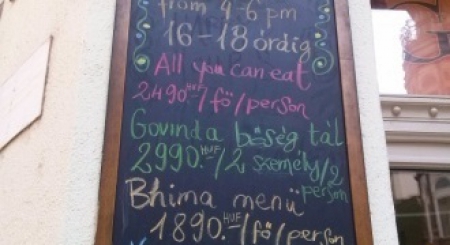 from 4-6 pm
16-18 óráig
All you can eat
2490.HUF/fő/person
Govinda bőség tál
2990.HUF/2 személy/2
person
Bhima menü
1890.HUF/fő/person